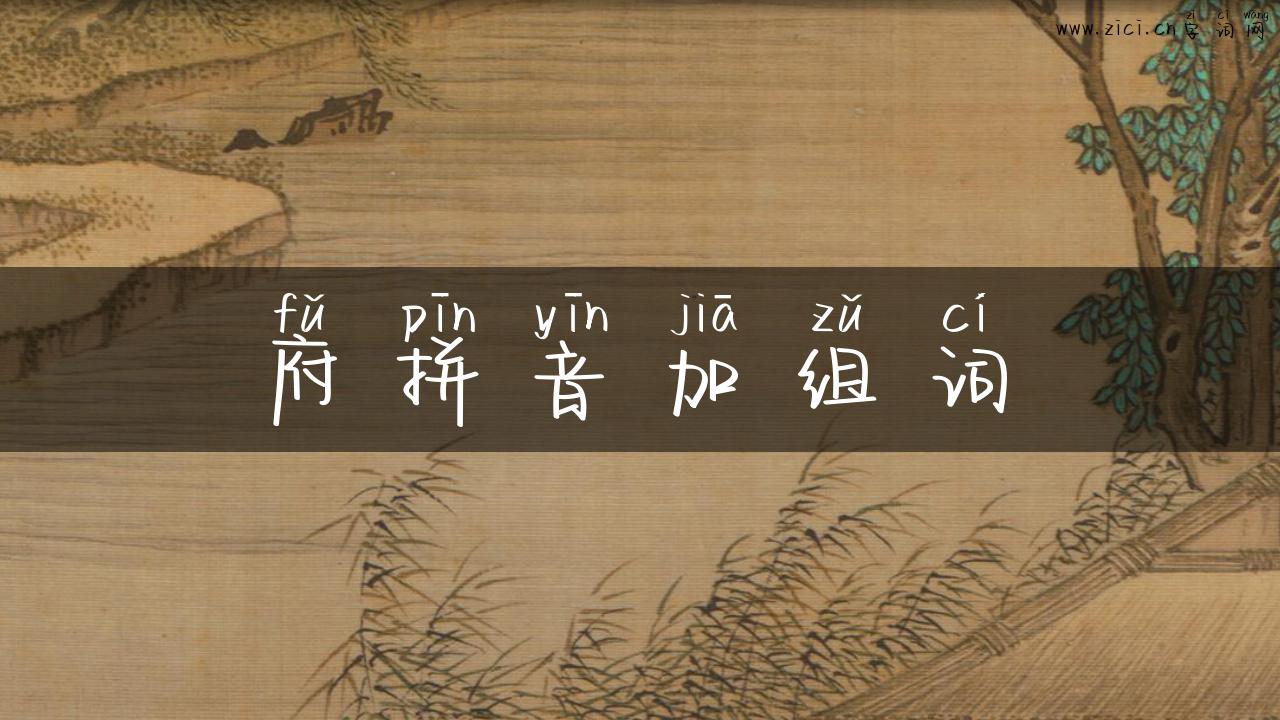 zì cí wǎng
www.zici.cn字词网
fǔ pīn yīn jiā zǔ cí
府拼音加组词